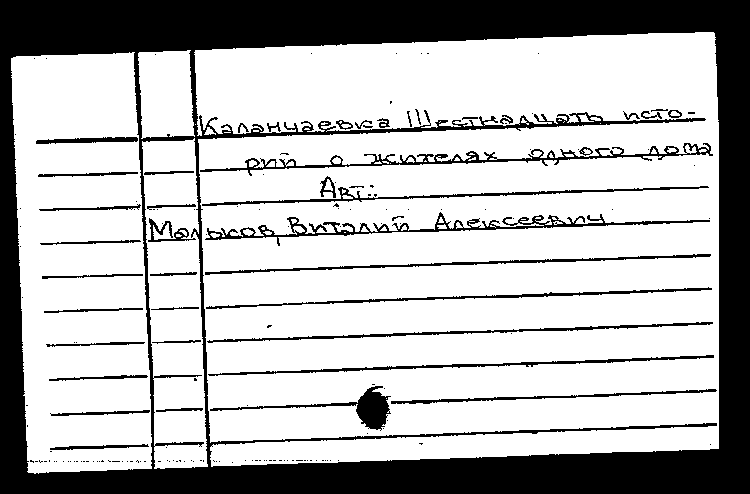 Каланчаевка Шестнадцать исто-
рий о жителях одного дома
Авт.:
Мальков, Виталий Алексеевич